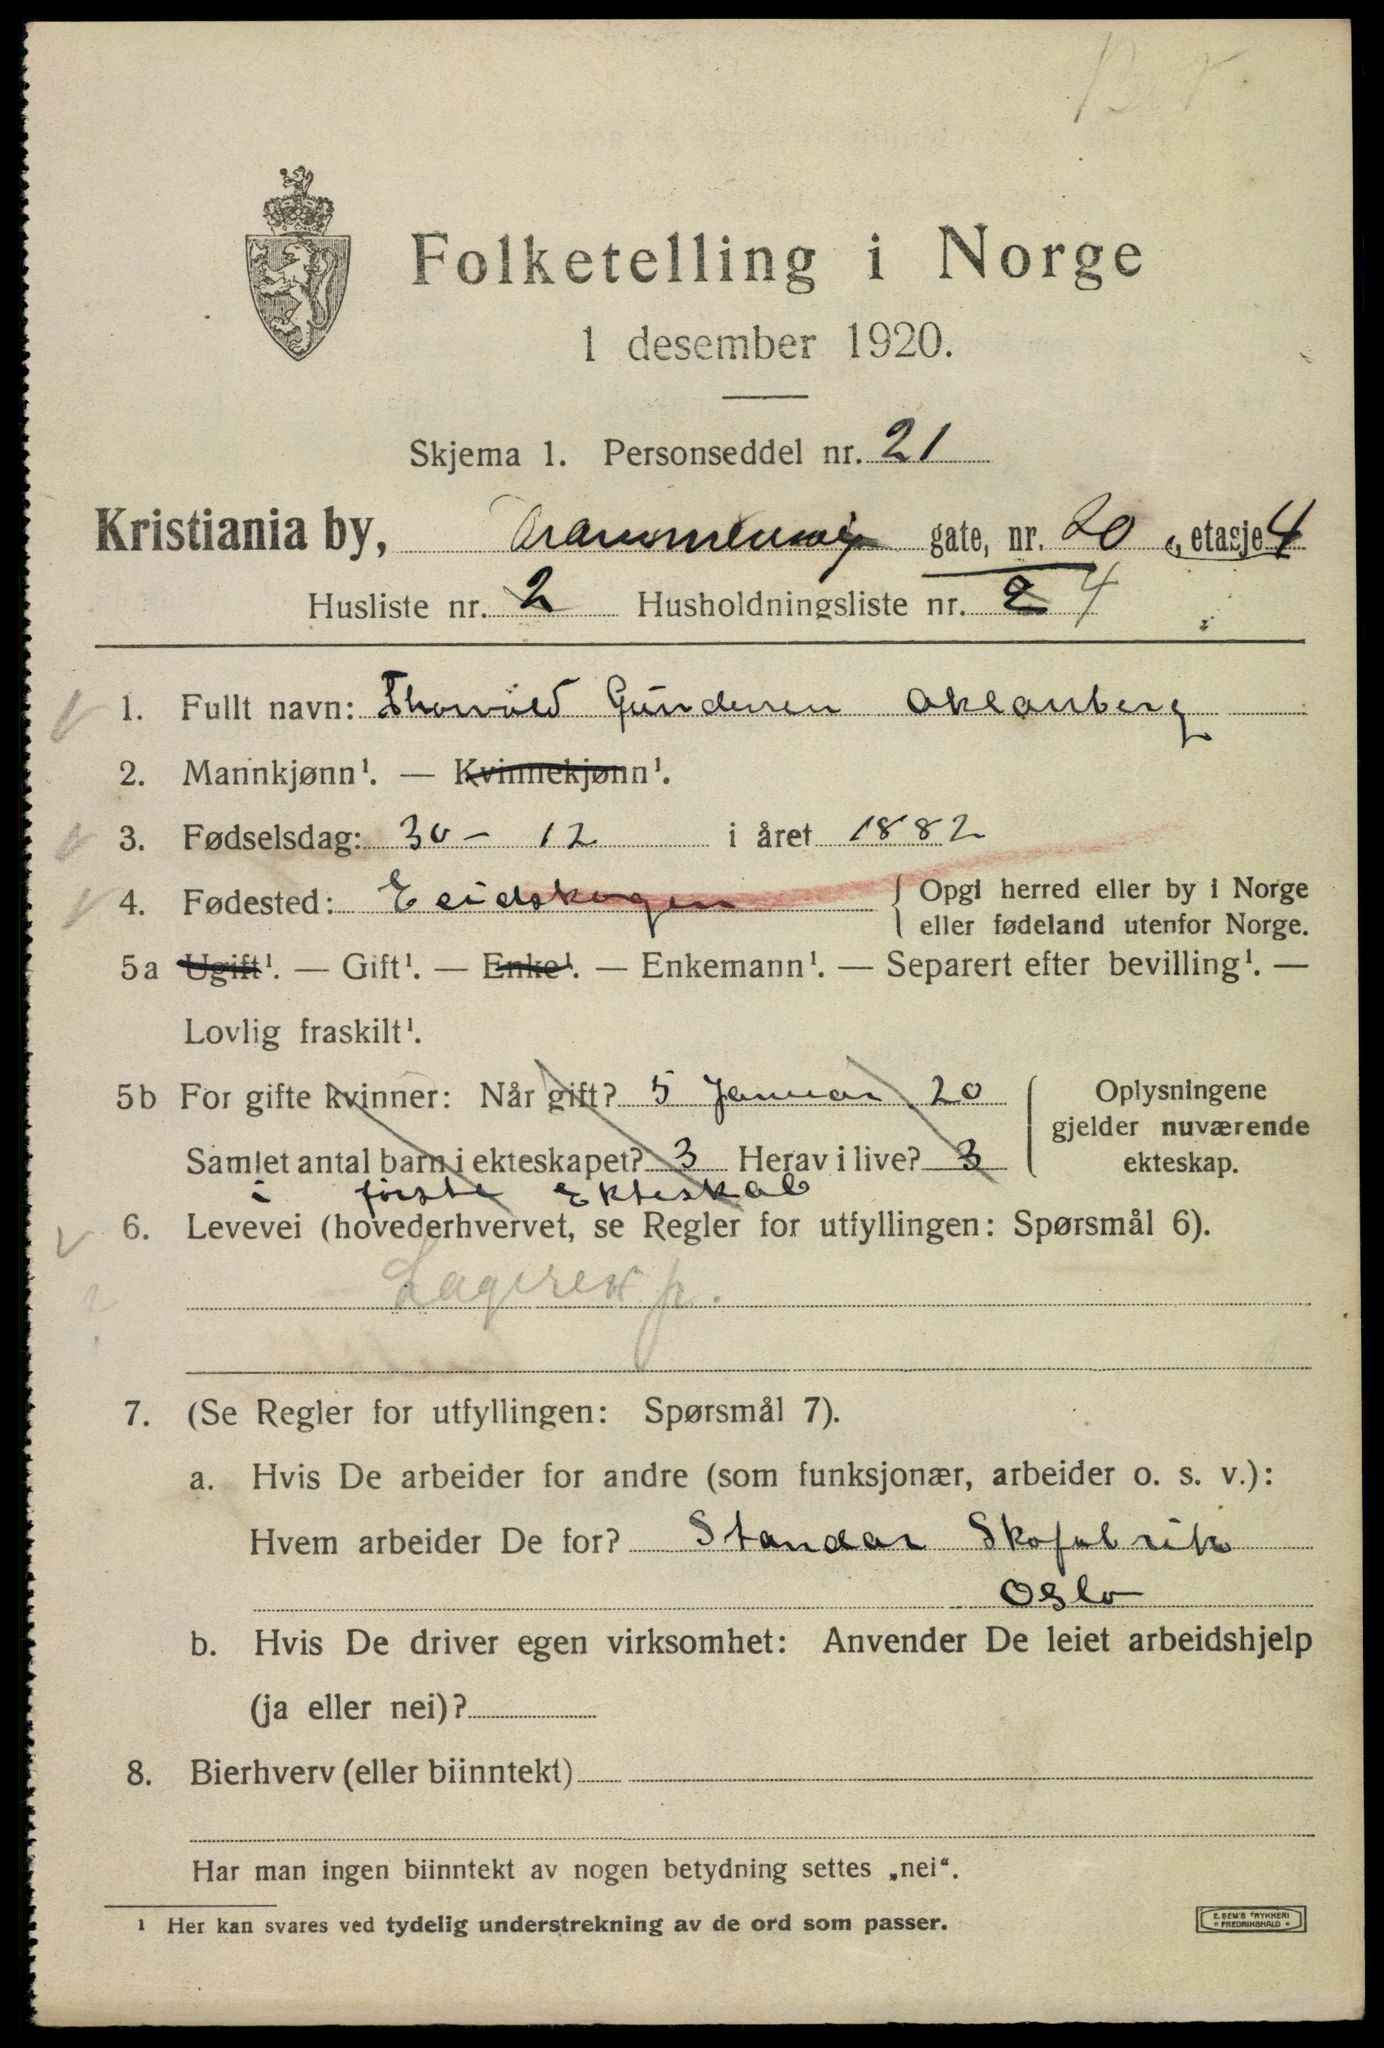 Folketelling i Norge
1 desember 1920.
Skjema 1. Personseddel nr. 21
Kristiania by, gate, nr. 20, etasje 4
Husliste nr. 2 Husholdningsliste nr. 2 4
1. Fullt navn: Thorvald Gundersen Aklanberg
2. Mannkjønn¹. — Kvinnekjønn¹.
3. Fødselsdag: 30 - 12 i året 1882
4. Fødested: Eeidskogen { Opgi herred eller by i Norge
eller fødeland utenfor Norge.
5a Ugift¹. — Gift¹. — Enke¹. — Enkemann¹. — Separert efter bevilling¹. —
Lovlig fraskilt¹.
5b For gifte kvinner: Når gift? 5 Januar 20
Samlet antal barn i ekteskapet? 3 Herav i live? 3
i første Ekteskab
Oplysningene
gjelder nuværende
ekteskap.
6. Levevei (hovederhvervet, se Regler for utfyllingen: Spørsmål 6).
Lagerexp.
7. (Se Regler for utfyllingen: Spørsmål 7).
a. Hvis De arbeider for andre (som funksjonær, arbeider o. s. v.):
Hvem arbeider De for? Standar Skofabrik
Oslo
b. Hvis De driver egen virksomhet: Anvender De leiet arbeidshjelp
(ja eller nei)?
8. Bierhverv (eller biinntekt)
Har man ingen biinntekt av nogen betydning settes „nei“.
¹ Her kan svares ved tydelig understrekning av de ord som passer.
E. SEM'S TRYKKERI
FREDRIKSHALD